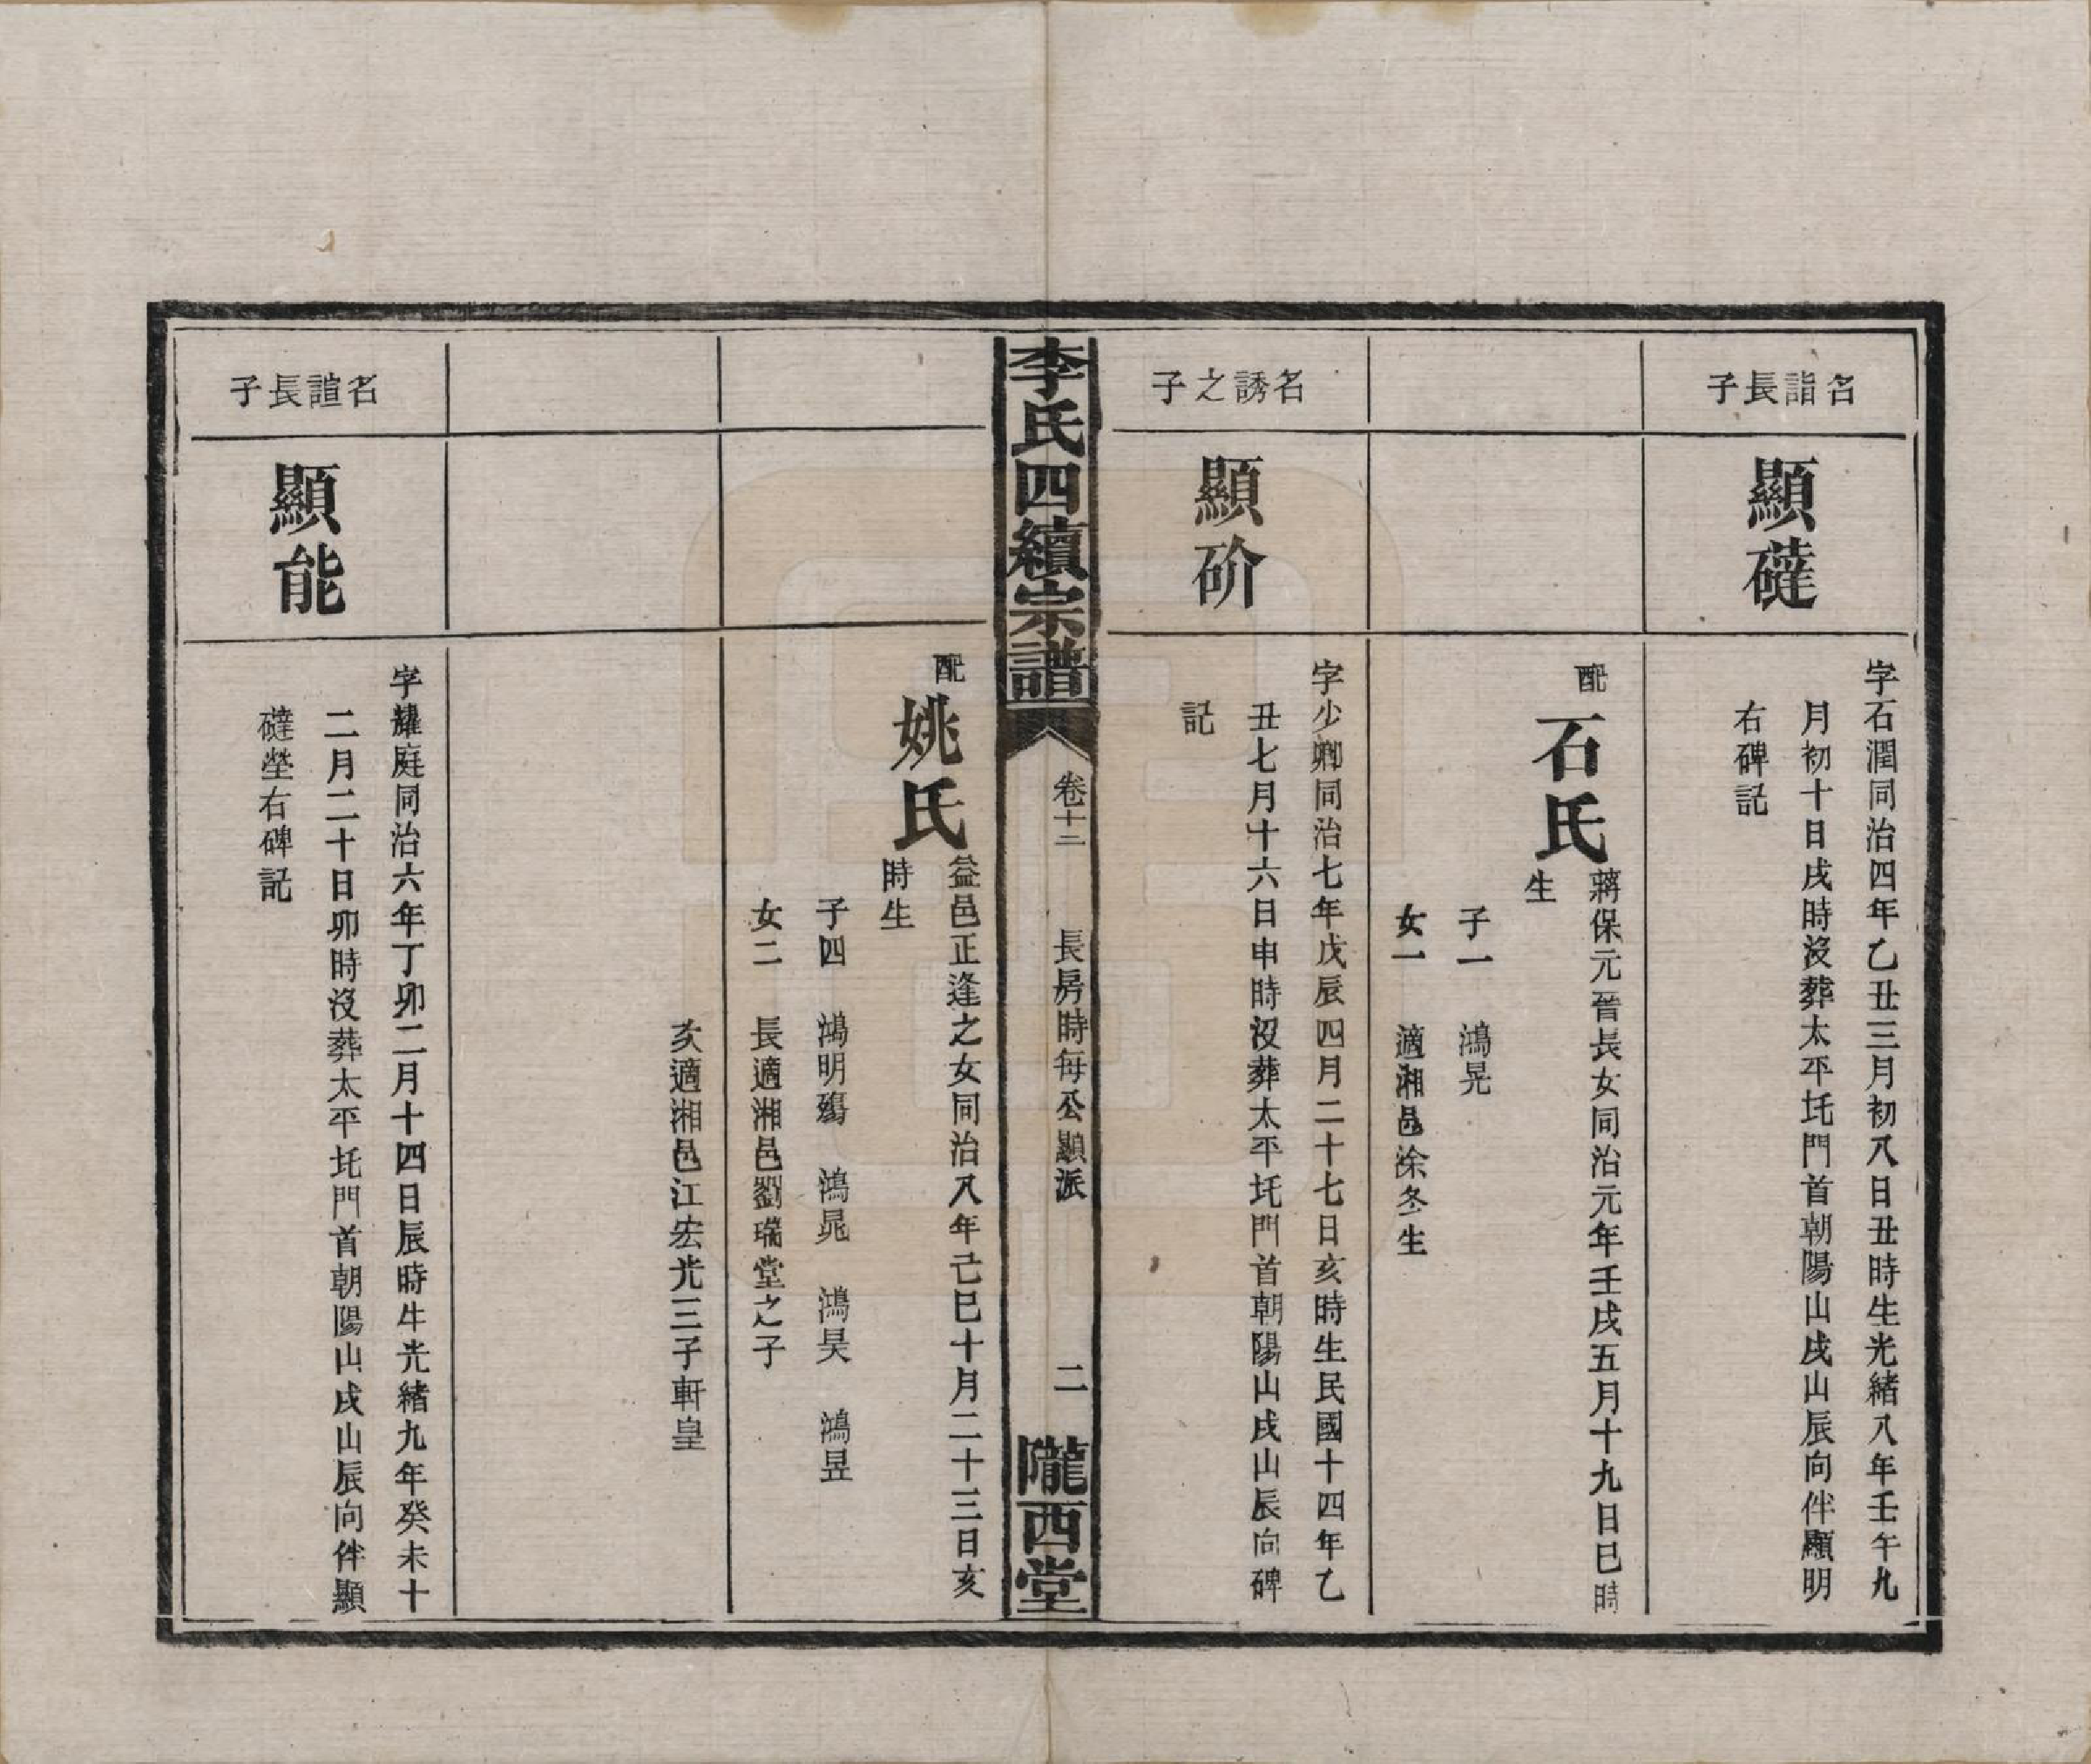 名詣長子
顯䃮
字石潤同治四年乙丑三月初八日丑時生光緒八年壬午九
月初十日戌時沒葬太平圫門首朝陽山戌山辰向伴顯明
右碑記
配石氏
蔣保元晉長女同治元年壬戌五月十九日巳時
生
子一　鴻晃
女一　適湘邑涂冬生
名誘之子
顯砎
字少卿同治七年戊辰四月二十七日亥時生民國十四年乙
丑七月十六日申時沒葬太平圫門首朝陽山戌山辰向碑
記
李氏四續宗譜
卷十二
長房時每公顯派
二
隴西堂
配姚氏
益邑正逢之女同治八年己巳十月二十三日亥
時生
子四　鴻明殤　鴻晁　鴻昊　鴻昱
女二　長適湘邑劉瑞堂之子
次適湘邑江宏光三子軒皇
名諠長子
顯能
字耀庭同治六年丁卯二月十四日辰時生光緒九年癸未十
二月二十日卯時沒葬太平圫門首朝陽山戌山辰向伴顯
䃮塋右碑記